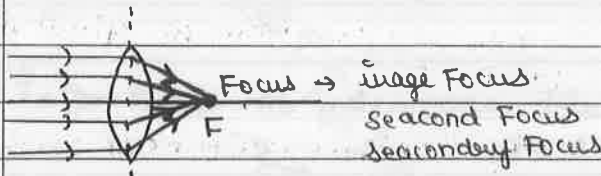 Focus → image Focus.
F
seacond Focus
seacondery Focus